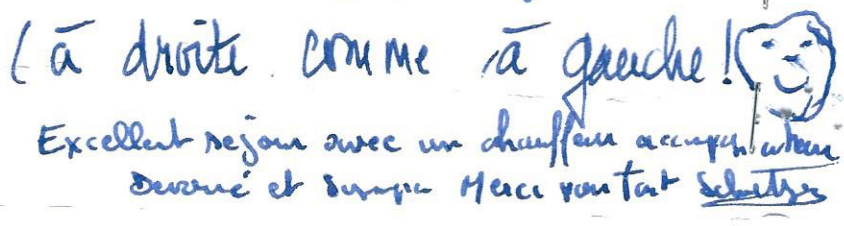 ( à droite comme à gauche !
Excellent séjour avec un chauffeur accompagnateur
Dévoué et Sympa Merci pour tout